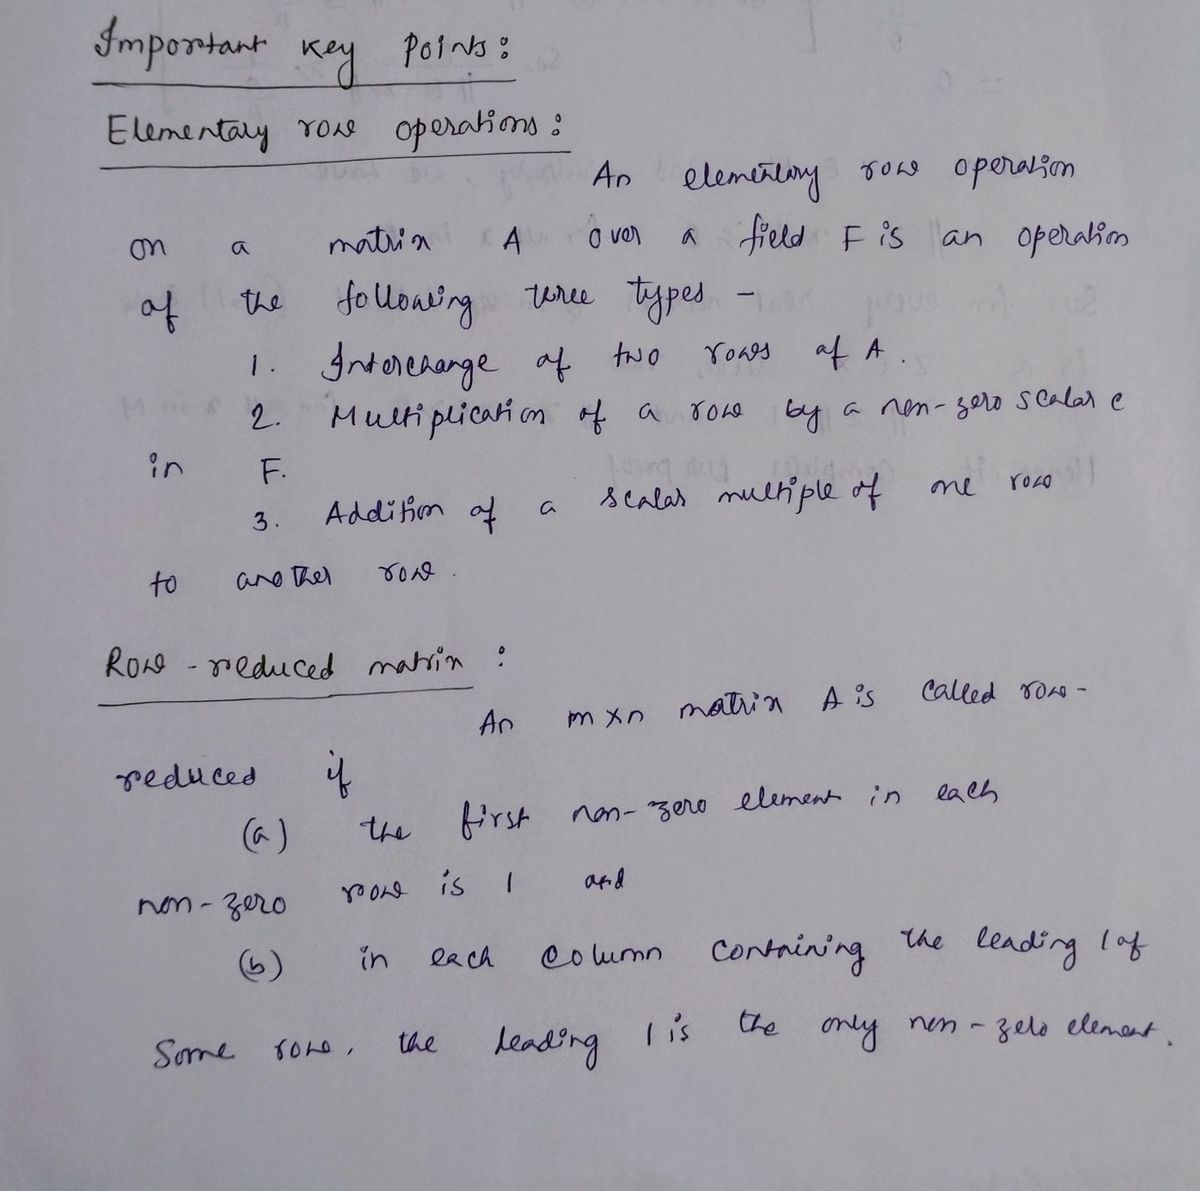 Important key Points :
Elementary row operations :
An elementary row operation
on a matrix A over a field F is an operation
of the following three types -
1. Interchange of two rows of A.
2. Multiplication of a row by a non-zero scalar c
in F.
3. Addition of a scalar multiple of one row
to another row.
Row-reduced matrix :
An m×n matrix A is called row-
reduced if
(a) the first non-zero element in each
non-zero row is 1 and
(b) in each column containing the leading 1 of
Some row, the leading 1 is the only non-zero element.